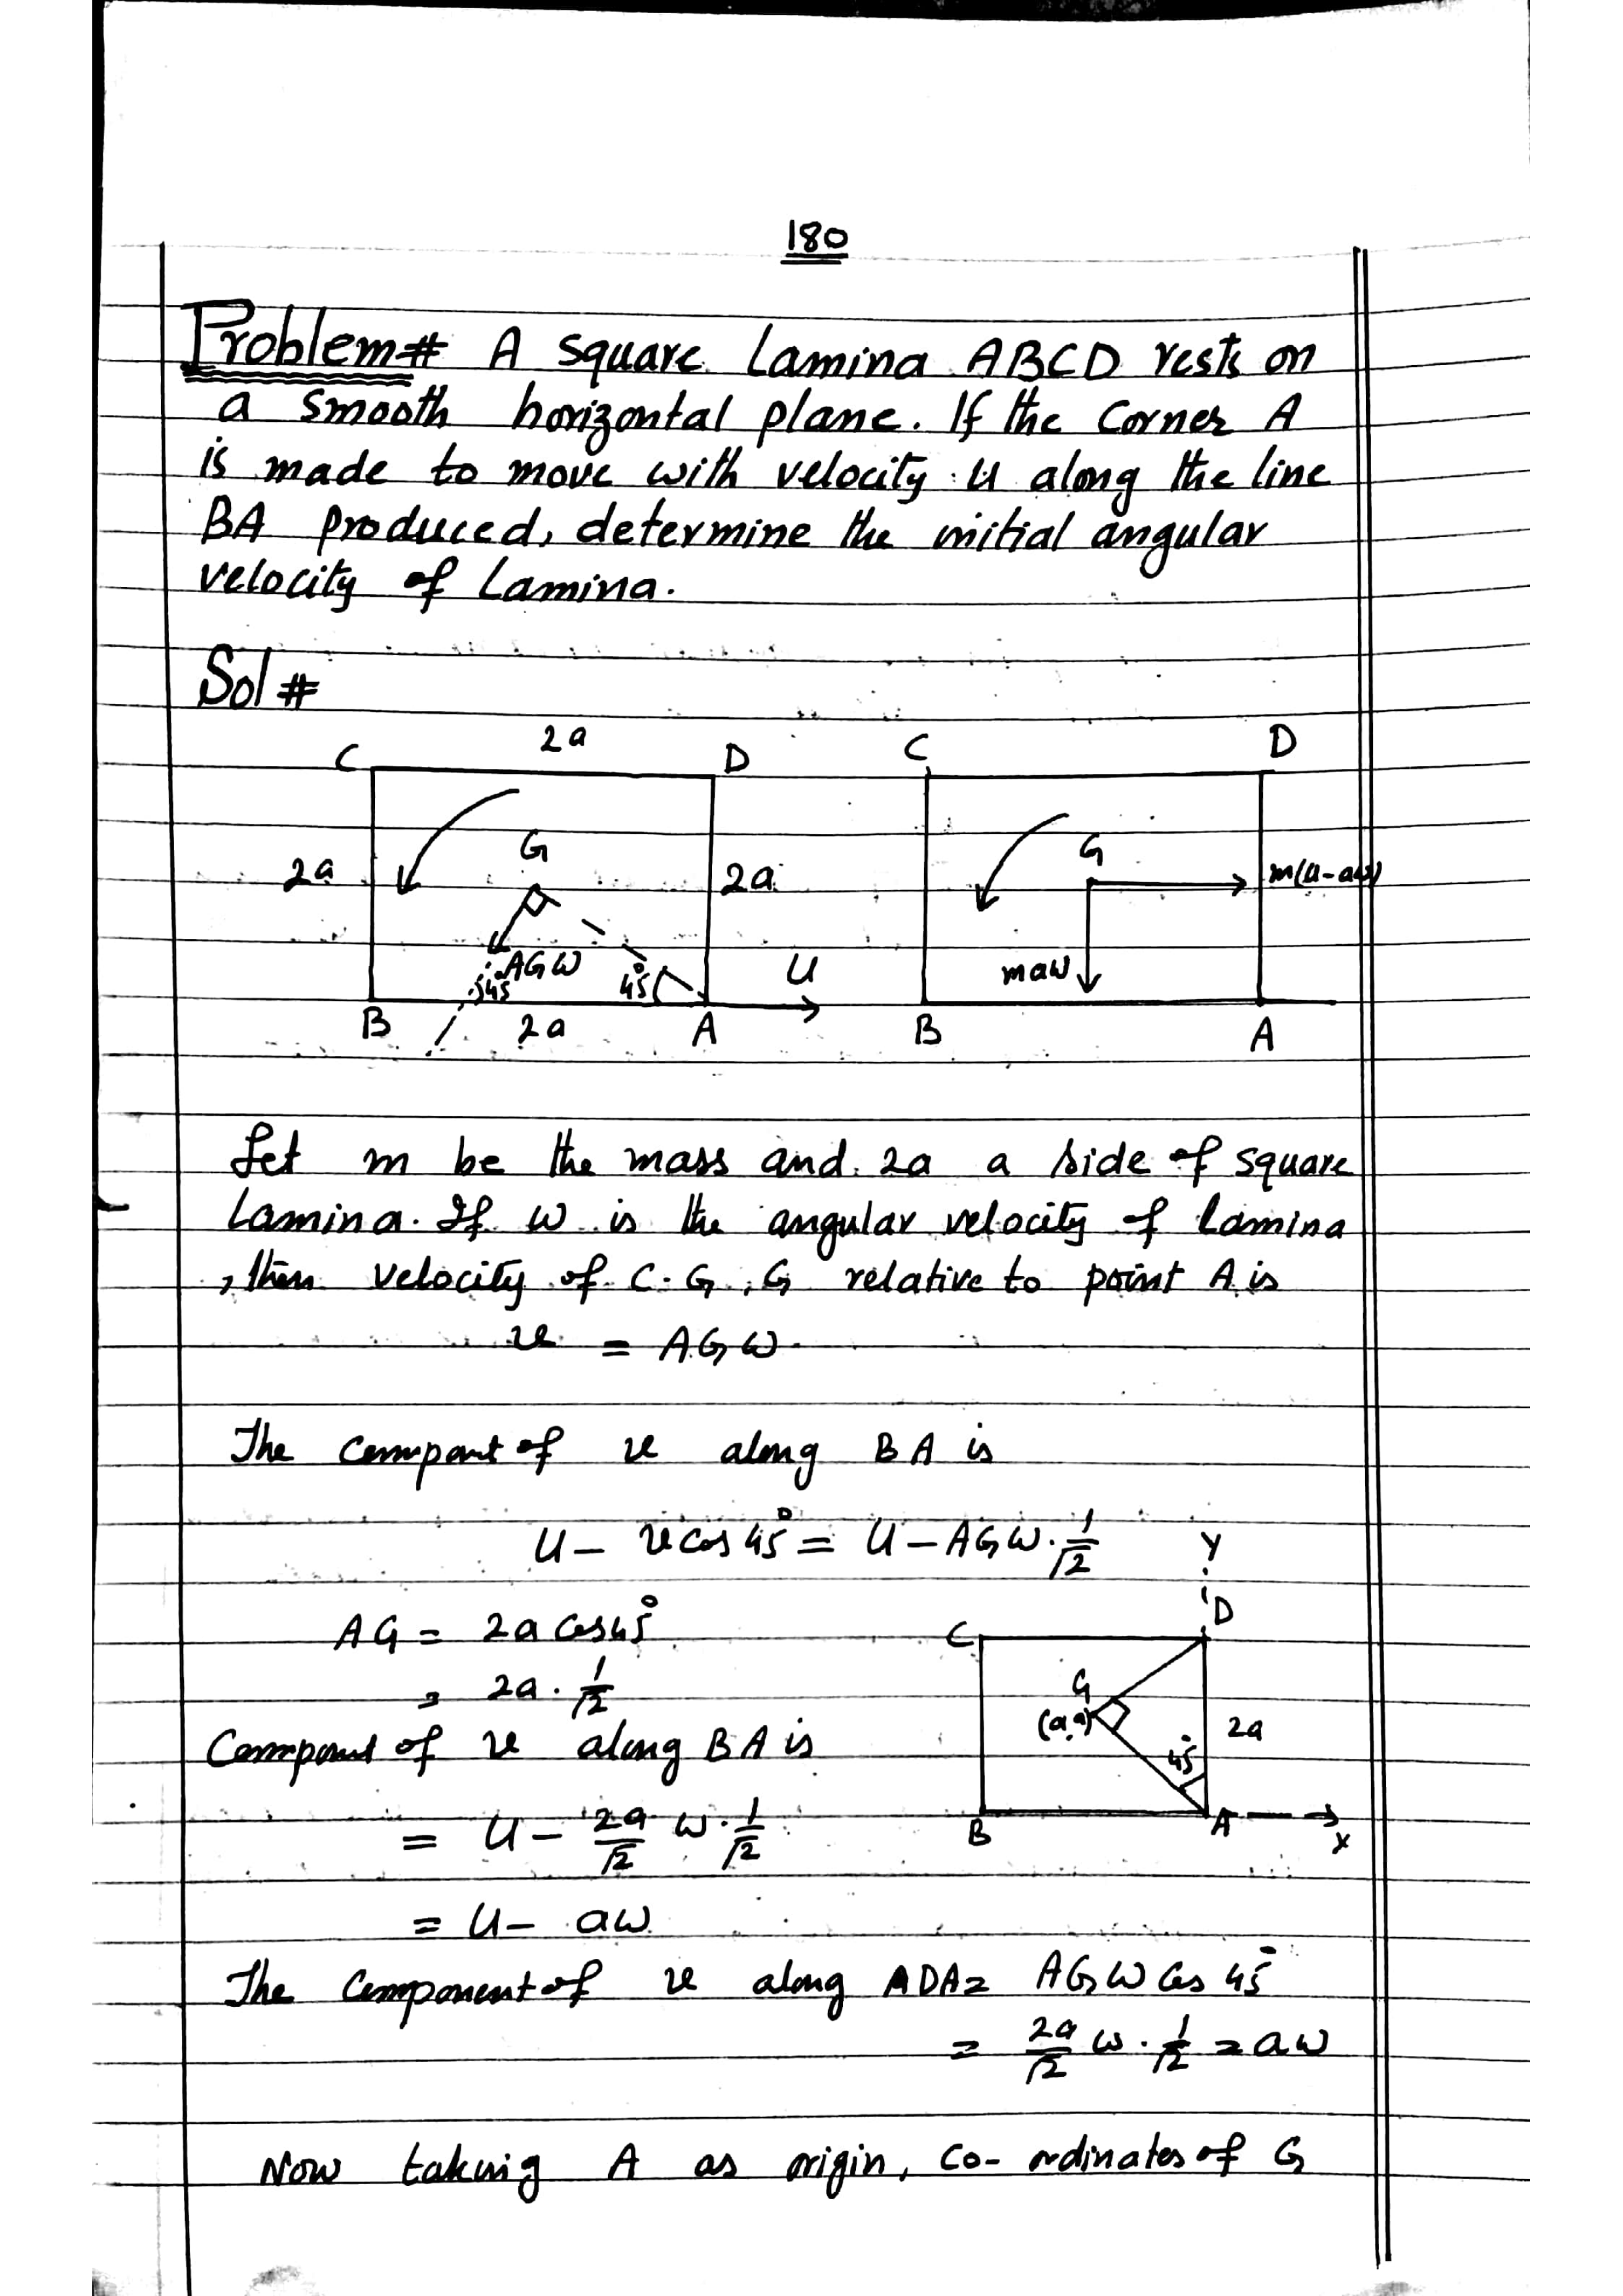 180
Problem# A square Lamina ABCD rests on
a smooth horizontal plane. If the Corner A
is made to move with velocity U along the line
BA Produced, determine the initial angular
velocity of Lamina.
Sol #
C 2a D C D
2a G 2a G m(U-aω)
AGω 45° 45° U maω
B 2a A B A
Let m be the mass and 2a a side of square
Lamina. If ω is the angular velocity of Lamina
, then velocity of C.G, G relative to point A is
v = AGω
The compont of v along BA is
U - v cos 45° = U - AGω · 1/√2
Y
AG = 2a Cos45°
C D
= 2a · 1/√2
G
(a,a) 2a
Componet of v along BA is
45°
= U - 2a/√2 ω · 1/√2
B A X
= U - aω
The Component of v along ADA= AGω Cos 45°
= 2a/√2 ω · 1/√2 = aω
Now taking A as origin, Co-ordinates of G